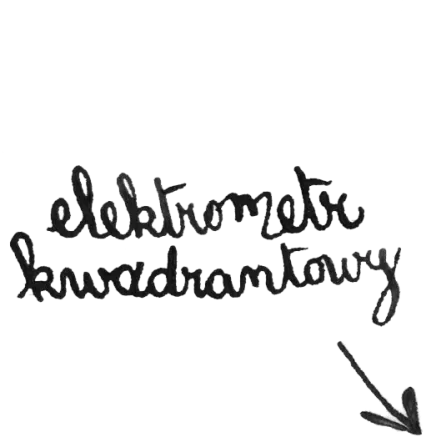 elektrometr
kwadrantowy